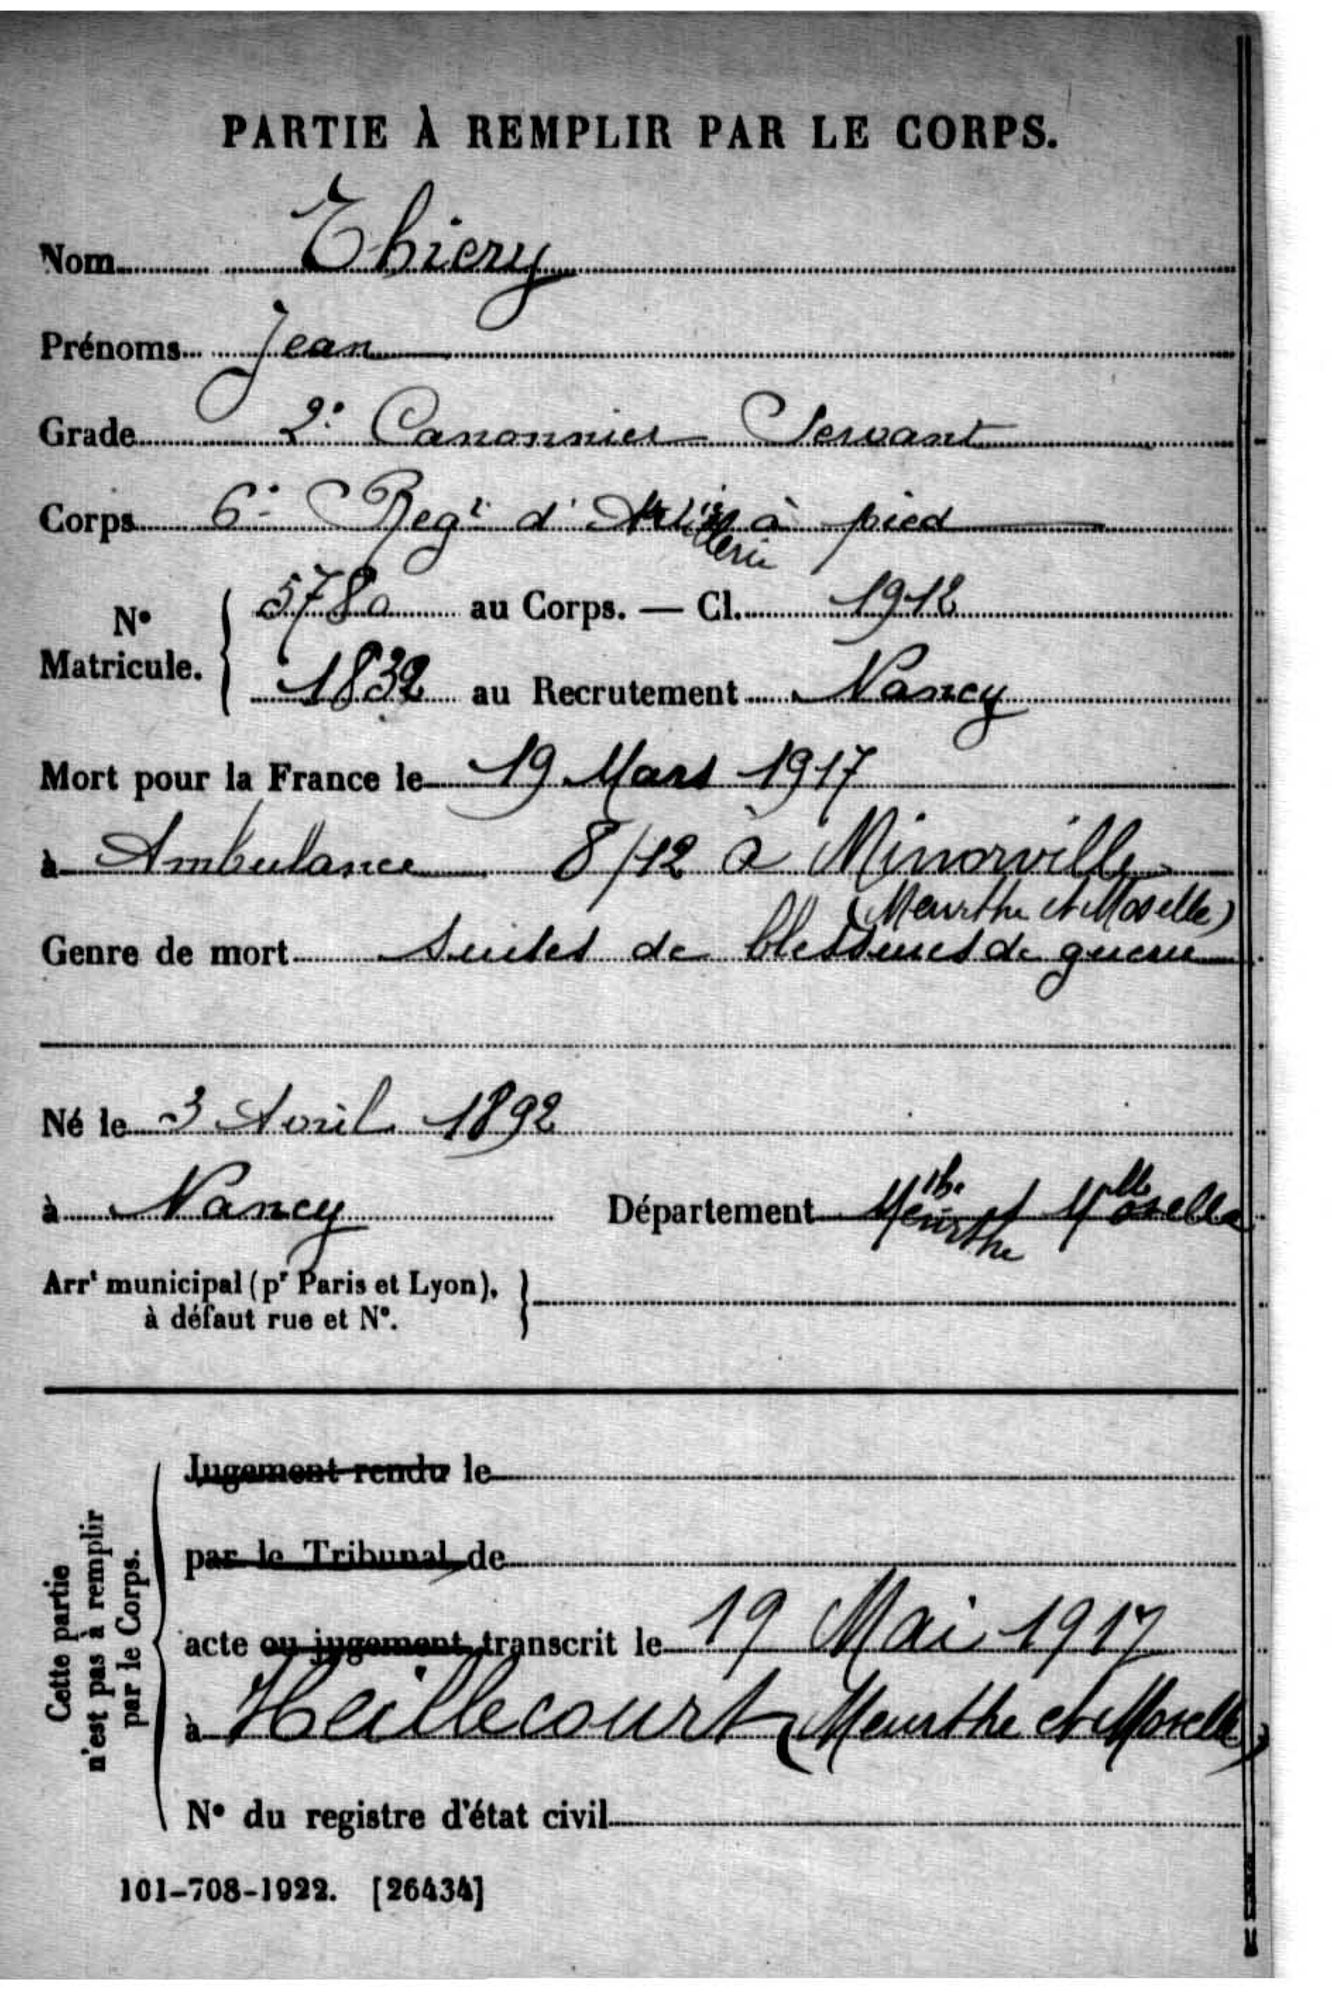 PARTIE À REMPLIR PAR LE CORPS.
Nom Thiery
Prénoms Jean
Grade 2e Canonnier Servant
Corps 6e Regt d'Artillerie à pied
N° Matricule. { 5780 au Corps. — Cl. 1912
1832 au Recrutement Nancy
Mort pour la France le 19 Mars 1917
à Ambulance 8/12 à Minorville
(Meurthe et Moselle)
Genre de mort suites de blessures de guerre
Né le 3 Avril 1892
à Nancy Département Meurthe et Moselle
Arrt municipal (pr Paris et Lyon), }
à défaut rue et N°.
Cette partie
n'est pas à remplir
par le Corps.
Jugement rendu le
par le Tribunal de
acte ou jugement transcrit le 19 Mai 1917
à Heillecourt (Meurthe et Moselle)
N° du registre d'état civil
101-708-1922. [26434]